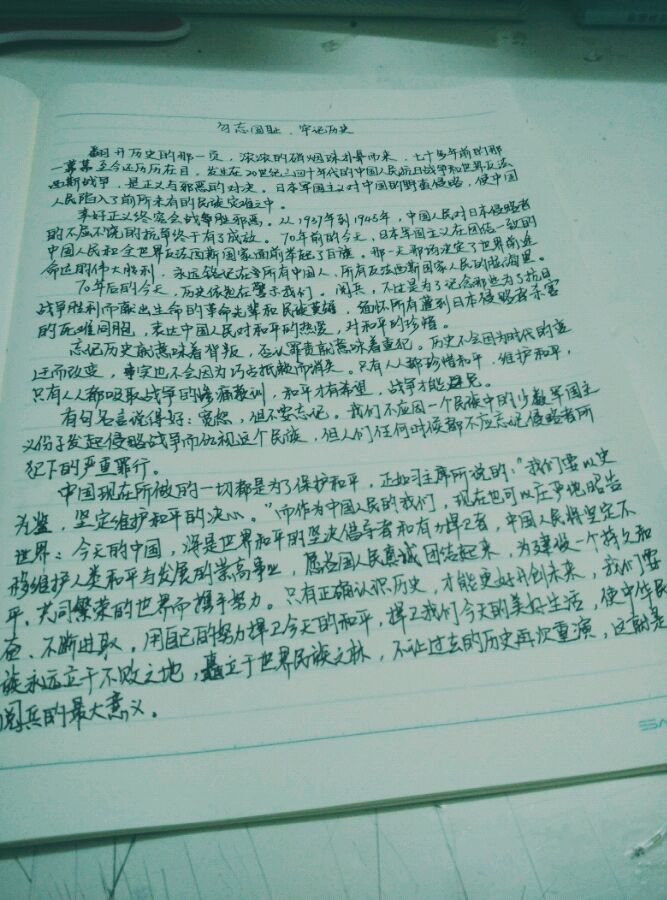 勿忘国耻、牢记历史
翻开历史的那一页,浓浓的硝烟味扑鼻而来,七十多年前的那
一幕幕至今还历历在目,发生在20世纪三四十年代的中国人民抗日战争和世界反法
西斯战争,是正义与邪恶的对决。日本军国主义对中国的野蛮侵略,使中国
人民陷入了前所未有的民族灾难之中。
幸好正义终究会战胜邪恶。从1937年到1945年,中国人民对日本侵略者
的不屈不饶的抗争终于有了成效。70年前的今天,日本军国主义在团结一致的
中国人民和全世界反法西斯国家面前举起了白旗。那一天那场决定了世界前途
命运的伟大胜利,永远铭记在了所有中国人,所有反法西斯国家人民的脑海里。
70年后的今天,历史依旧在警示我们。阅兵,不仅是为了纪念那些为了抗日
战争胜利而献出生命的革命先辈和民族英雄,缅怀所有遭到日本侵略者杀害
的死难同胞,表达中国人民对和平的热爱,对和平的珍惜。
忘记历史就意味着背叛,否认罪责就意味着重犯。历史不会因为时代的变
迁而改变,事实也不会因为巧舌抵赖而消失。只有人人都珍惜和平,维护和平,
只有人人都吸取战争的惨痛教训,和平才有希望,战争才能避免。
有句名言说得好:宽恕,但不要忘记。我们不应因一个民族中的少数军国主
义份子发起侵略战争而仇视这个民族,但人们任何时候都不应忘记侵略者所
犯下的严重罪行。
中国现在所做的一切都是为了保护和平,正如习主席所说的:"我们要以史
为鉴,坚定维护和平的决心。"而作为中国人民的我们,现在也可以庄严地昭告
世界:今天的中国,将是世界和平的坚决倡导者和有力捍卫者,中国人民将坚定不
移维护人类和平与发展的崇高事业,愿各国人民真诚团结起来,为建设一个持久和
平、共同繁荣的世界而携手努力。只有正确认识历史,才能更好开创未来,我们要
奋、不断进取,用自己的努力捍卫今天的和平,捍卫我们今天的美好生活,使中华民
族永远立于不败之地,矗立于世界民族之林,不让过去的历史再次重演,这就是
阅兵的最大意义。